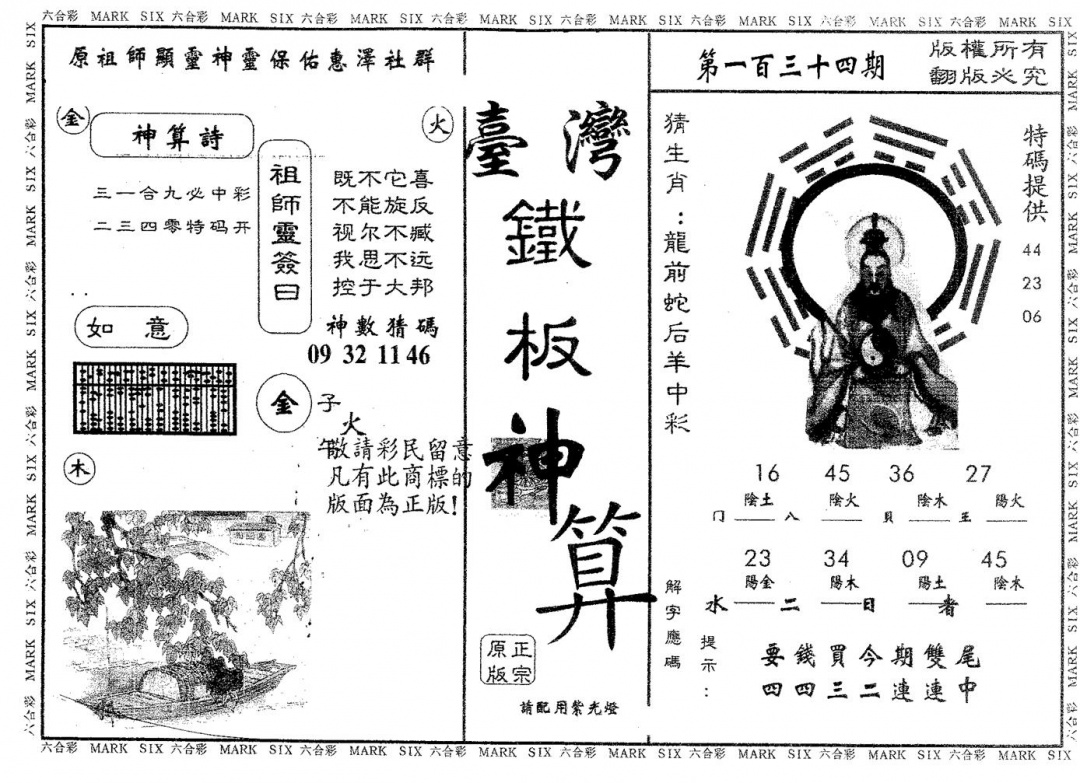 六合彩 MARK SIX 六合彩 MARK SIX 六合彩 MARK SIX 六合彩 MARK SIX 六合彩 MARK SIX 六合彩 MARK SIX 六合彩 MARK SIX 六合彩 MARK SIX
原祖師顯靈神靈保佑惠澤社群
金
神算詩
火
三一合九必中彩
二三四零特码开
祖師靈簽曰
既不它喜
不能旋反
视尔不臧
我思不远
控于大邦
如意
神數猜碼
09 32 11 46
金
子
火
午
木
敬請彩民留意
凡有此商標的
版面為正版!
臺灣
鐵
板
神
算
正宗
原版
請配用紫光燈
第一百三十四期
版權所有
翻版必究
猜生肖:龍前蛇后羊中彩
特碼提供
44
23
06
16 45 36 27
陰土 陰火 陰木 陽火
门 八 貝 王
23 34 09 45
陽金 陽木 陽土 陰木
水 二 日 者
解字應碼
提示:
要錢買今期雙尾
四四三二連連中
六合彩 MARK SIX 六合彩 MARK SIX 六合彩 MARK SIX 六合彩 MARK SIX 六合彩 MARK SIX 六合彩 MARK SIX 六合彩 MARK SIX 六合彩 MARK SIX